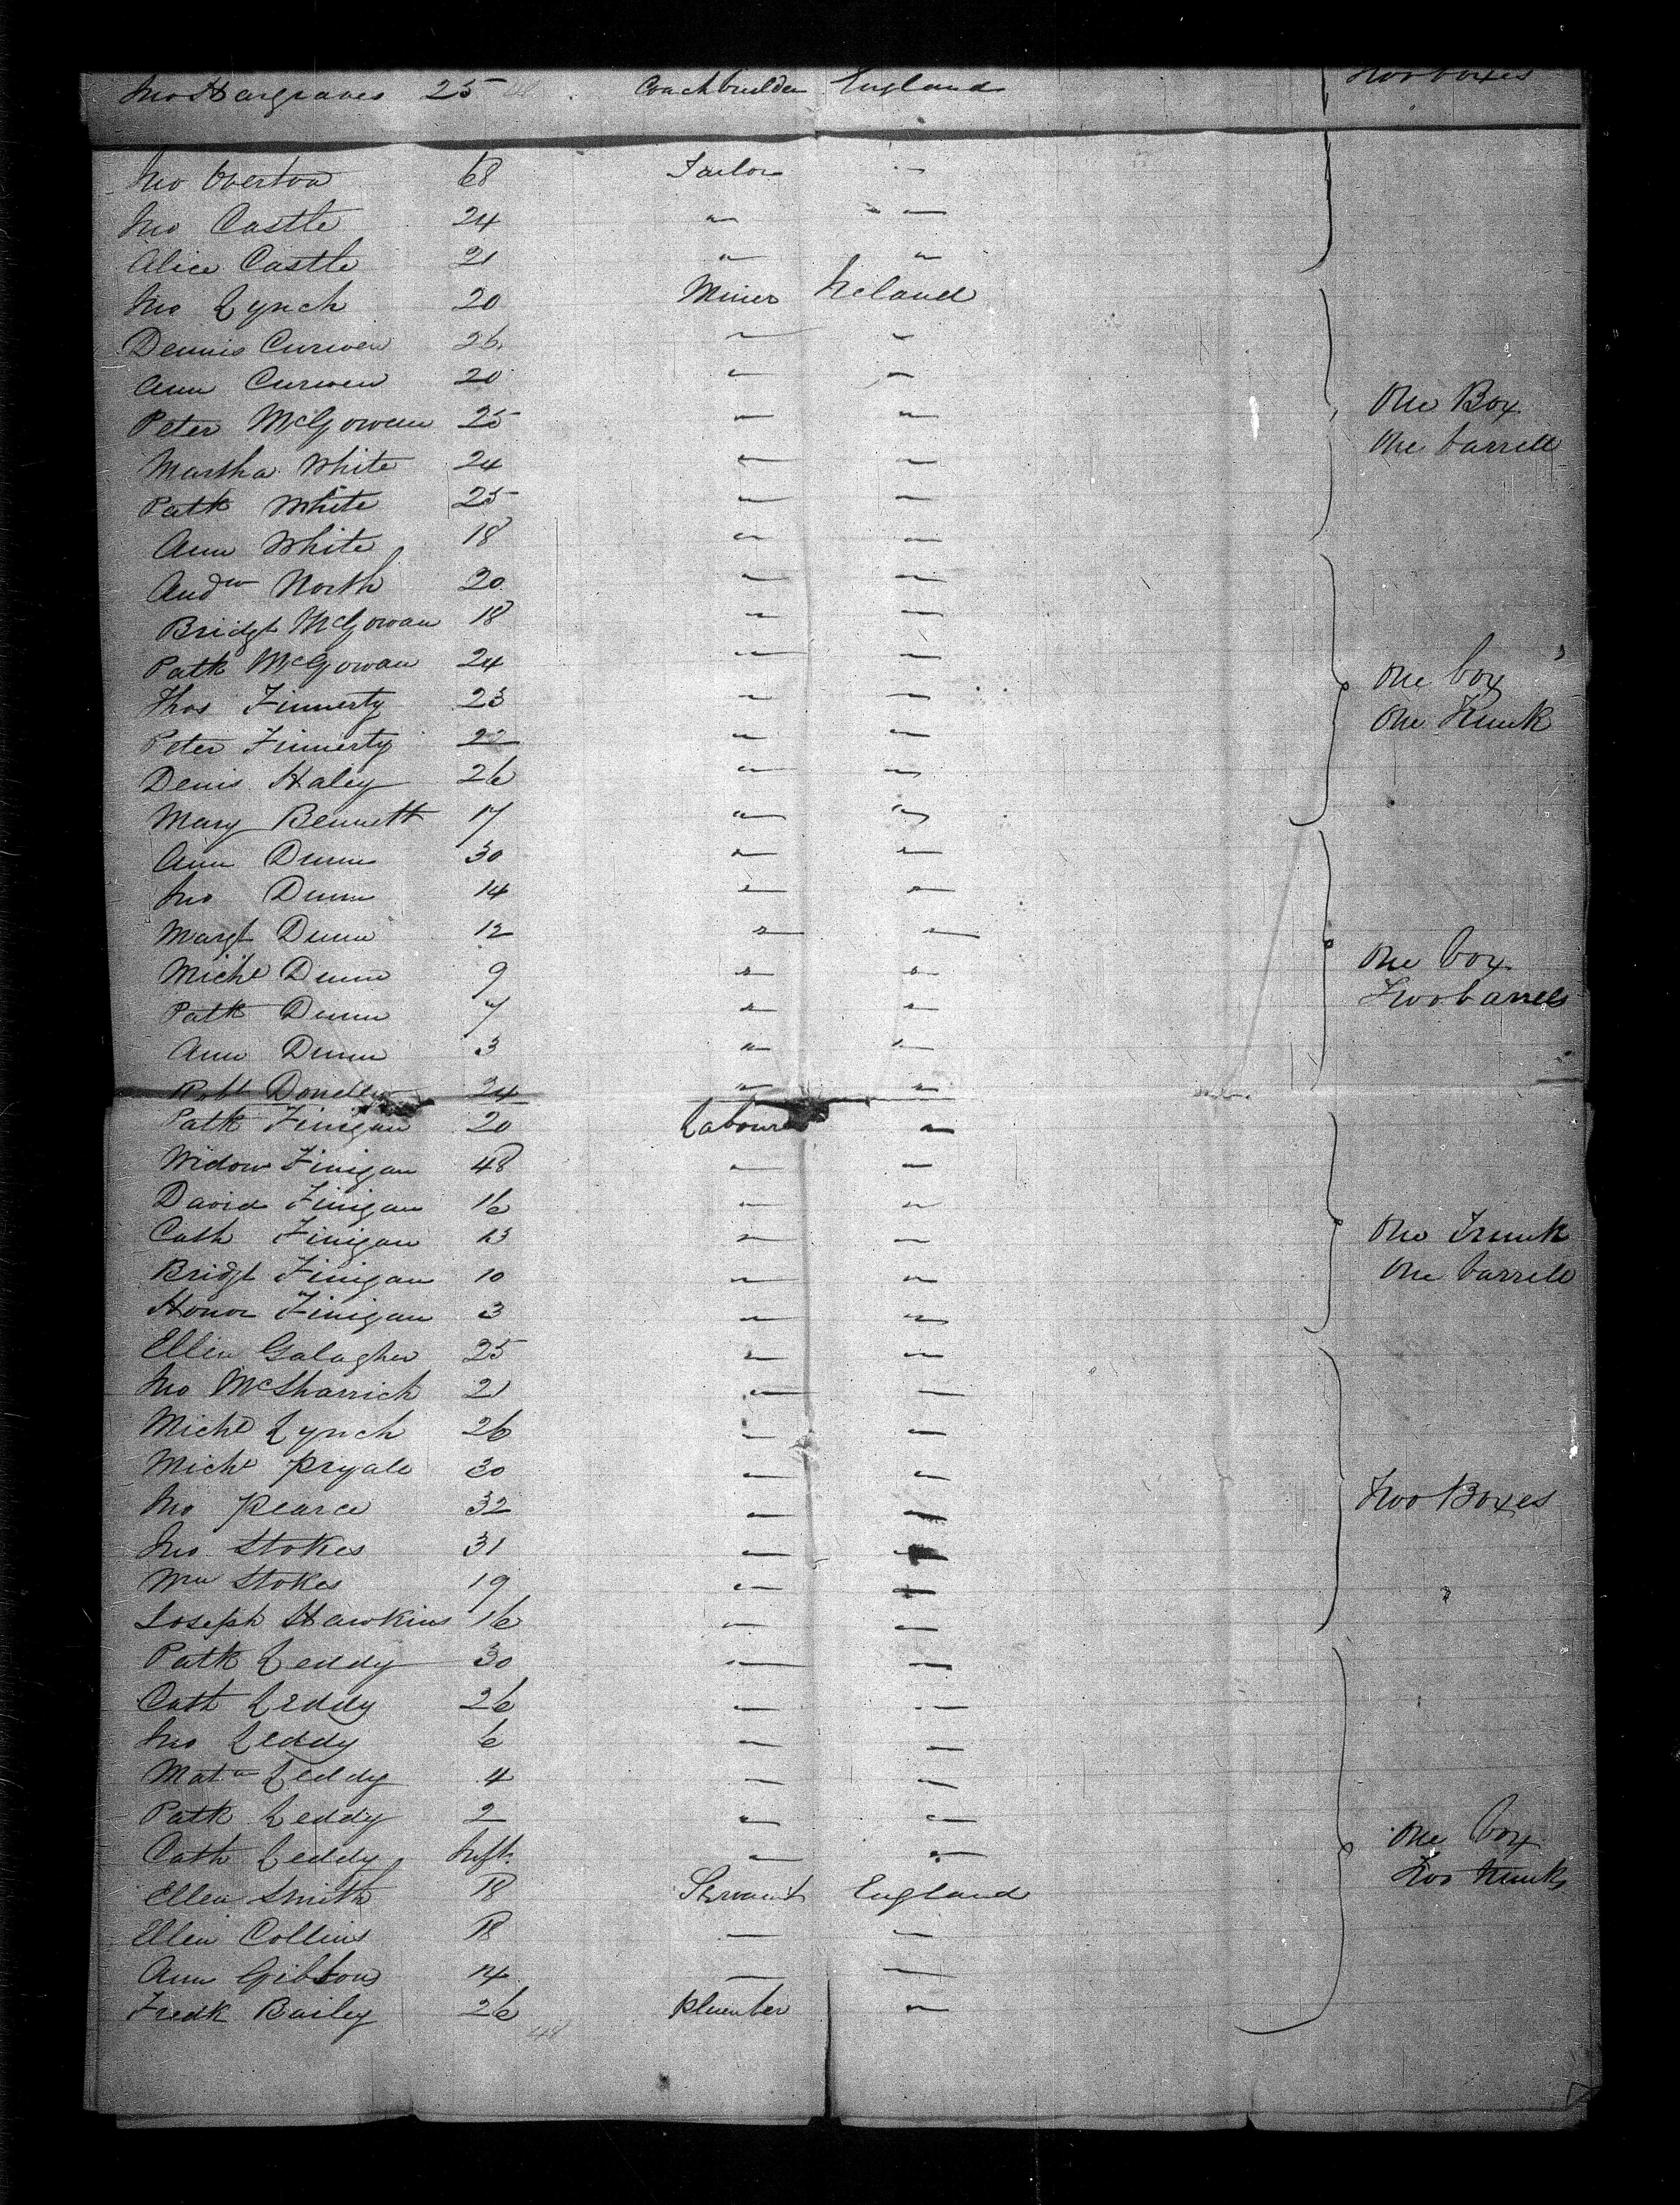 Jno Hargraves 25 Coachbuilder England Two boxes
Jno Overton 68 Tailor "
Jno Castle 24 " "
Alice Castle 21 " "
Jno Lynch 20 Miner Ireland
Dennis Curwen 26 " "
Ann Curwen 20 " "
Peter McGowan 25 " " One Box
Martha White 24 " " One barrell
Patk White 25 " "
Ann White 18 " "
Andw North 20 " "
Bridgt McGowan 18 " "
Patk McGowan 24 " " One box
Thos Finnerty 23 " " One Trunk
Peter Finnerty 22 " "
Denis Haley 26 " "
Mary Bennett 17 " "
Ann Dunn 30 " "
Jno Dunn 14 " "
Margt Dunn 12 " "
Michl Dunn 9 " " One box
Patk Dunn 7 " " Two barrels
Ann Dunn 3 " "
Robt 24 " "
Patk Finigan 20 Labourer "
Widow Finigan 48 " "
David Finigan 16 " "
Cath Finigan 13 " " One Trunk
Bridgt Finigan 10 " " One barrell
Honor Finigan 3 " "
Ellen Galagher 25 " "
Jno McSharrick 21 " "
Michl Lynch 26 " "
Michl Pryale 30 " "
Jno Pearce 32 " " Two Boxes
Jno Stokes 31 " "
Wm Stokes 19 " "
Joseph Hawkins 16 " "
Patk Leddy 30 " "
Cath Leddy 26 " "
Jno Leddy 6 " "
Mata Leddy 4 " "
Patk Leddy 2 " " One box
Cath Leddy Inft. " " Two trunks
Ellen Smith 18 Servant England
Ellen Collins 18 " "
Ann Gibbons 14 " "
Fredk Bailey 26 Plumber "
48